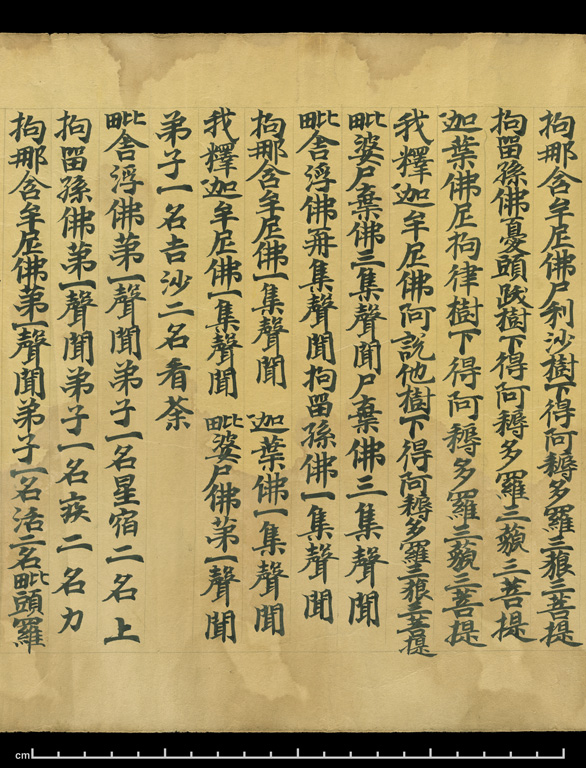 拘那含牟尼佛尸利沙樹下得阿耨多羅三藐三菩提
拘留孫佛憂頭跋樹下得阿耨多羅三藐三菩提
迦葉佛尼拘律樹下得阿耨多羅三藐三菩提
我釋迦牟尼佛阿說他樹下得阿耨多羅三藐三菩提
毗婆尸棄佛三集聲聞尸棄佛三集聲聞
毗舍浮佛再集聲聞拘留孫佛一集聲聞
拘那含牟尼佛一集聲聞 迦葉佛一集聲聞
我釋迦牟尼佛一集聲聞 毗婆尸佛第一聲聞
弟子一名吉沙二名看荼
毗舍浮佛第一聲聞弟子一名星宿二名上
拘留孫佛第一聲聞弟子一名疾二名力
拘那含牟尼佛第一聲聞弟子一名活二名毗頭羅
cm